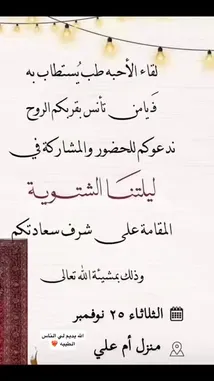 لقاء الأحبه طب يُستطاب به
فَيامن تأنس بقربكم الروح
ندعوكم للحضور والمشاركة في
ليلتنَا الشتوية
المقامة على شرف سعادتكم
وذلك بمشيئة الله تعالى
الثلاثاء ٢٥ نوفمبر
الله يديم لي الناس
الطيبه
منزل أم علي